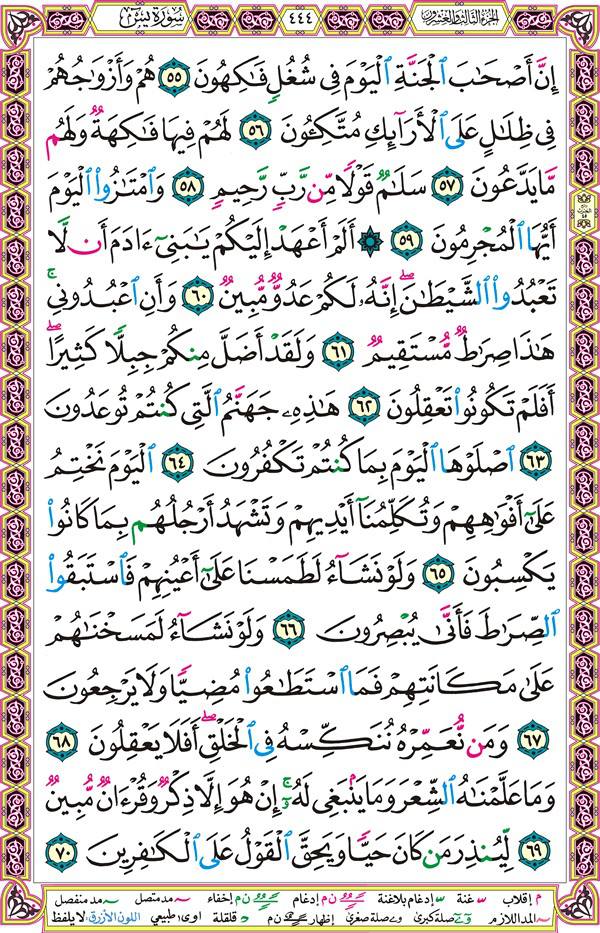 الجزء الثالث والعشرون ٤٤٤ سورة يس
إِنَّ أَصْحَابَ الْجَنَّةِ الْيَوْمَ فِى شُغُلٍ فَاكِهُونَ ٥٥ هُمْ وَأَزْوَاجُهُمْ
فِى ظِلَالٍ عَلَى الْأَرَآئِكِ مُتَّكِئُونَ ٥٦ لَهُمْ فِيهَا فَاكِهَةٌ وَلَهُم
مَّا يَدَّعُونَ ٥٧ سَلَامٌ قَوْلًا مِّن رَّبٍّ رَّحِيمٍ ٥٨ وَامْتَازُوا الْيَوْمَ
أَيُّهَا الْمُجْرِمُونَ ٥٩ ۞ أَلَمْ أَعْهَدْ إِلَيْكُمْ يَابَنِىٓ ءَادَمَ أَن لَّا
تَعْبُدُوا الشَّيْطَانَ ۖ إِنَّهُۥ لَكُمْ عَدُوٌّ مُّبِينٌ ٦٠ وَأَنِ اعْبُدُونِى ۚ
هَاذَا صِرَاطٌ مُّسْتَقِيمٌ ٦١ وَلَقَدْ أَضَلَّ مِنكُمْ جِبِلًّا كَثِيرًا ۖ
أَفَلَمْ تَكُونُوا تَعْقِلُونَ ٦٢ هَاذِهِۦ جَهَنَّمُ الَّتِى كُنتُمْ تُوعَدُونَ
٦٣ اصْلَوْهَا الْيَوْمَ بِمَا كُنتُمْ تَكْفُرُونَ ٦٤ الْيَوْمَ نَخْتِمُ
عَلَىٓ أَفْوَاهِهِمْ وَتُكَلِّمُنَآ أَيْدِيهِمْ وَتَشْهَدُ أَرْجُلُهُم بِمَا كَانُوا
يَكْسِبُونَ ٦٥ وَلَوْ نَشَآءُ لَطَمَسْنَا عَلَىٓ أَعْيُنِهِمْ فَاسْتَبَقُوا
الصِّرَاطَ فَأَنَّىٰ يُبْصِرُونَ ٦٦ وَلَوْ نَشَآءُ لَمَسَخْنَاهُمْ
عَلَىٰ مَكَانَتِهِمْ فَمَا اسْتَطَاعُوا مُضِيًّا وَلَا يَرْجِعُونَ
٦٧ وَمَن نُّعَمِّرْهُ نُنَكِّسْهُ فِى الْخَلْقِ ۖ أَفَلَا يَعْقِلُونَ ٦٨
وَمَا عَلَّمْنَاهُ الشِّعْرَ وَمَا يَنۢبَغِى لَهُۥٓ ۚ إِنْ هُوَ إِلَّا ذِكْرٌ وَقُرْءَانٌ مُّبِينٌ
٦٩ لِّيُنذِرَ مَن كَانَ حَيًّا وَيَحِقَّ الْقَوْلُ عَلَى الْكَافِرِينَ ٧٠
م إقلاب غنة إدغام بلاغنة ن م إدغام ن م إخفاء مد متصل مد منفصل
المد اللازم صلة كبرى صلة صغرى إظهار ن م قلقلة اوى؛ طبيعي اللون الأزرق: لا يلفظ